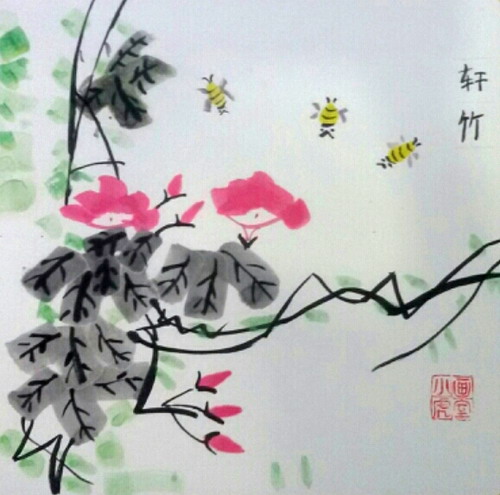 轩竹
画室
小虎